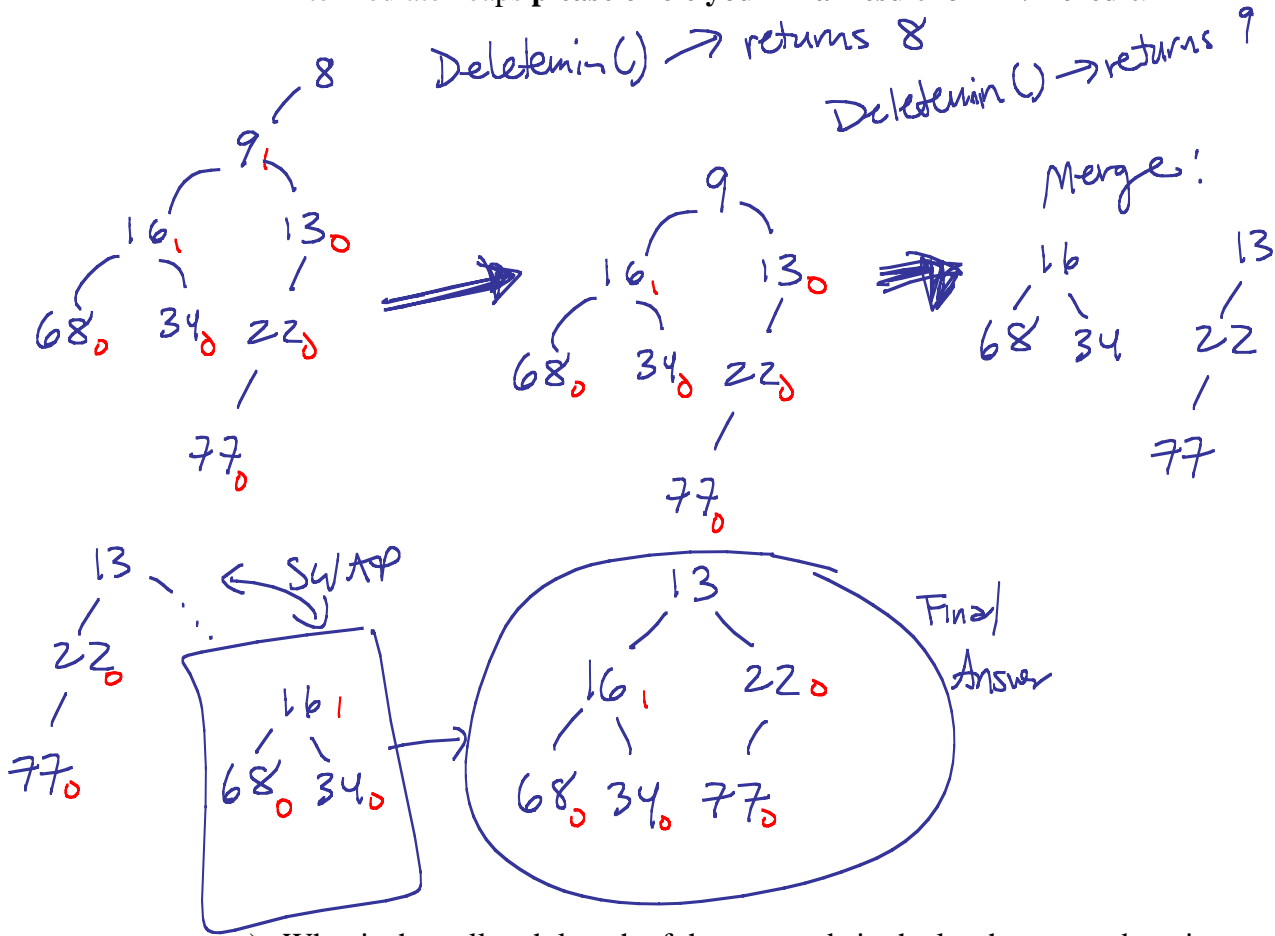 please
your
Deletemin() → returns 8
Deletemin() → returns 9
8
9 1
16 1 13 0
68 0 34 0 22 0
77 0
9
16 1 13 0
68 0 34 0 22 0
77 0
Merge:
16 13
68 34 22
77
13
SWAP
22 0
77 0
16 1
68 0 34 0
13
16 1 22 0
68 0 34 0 77 0
Final
Answer